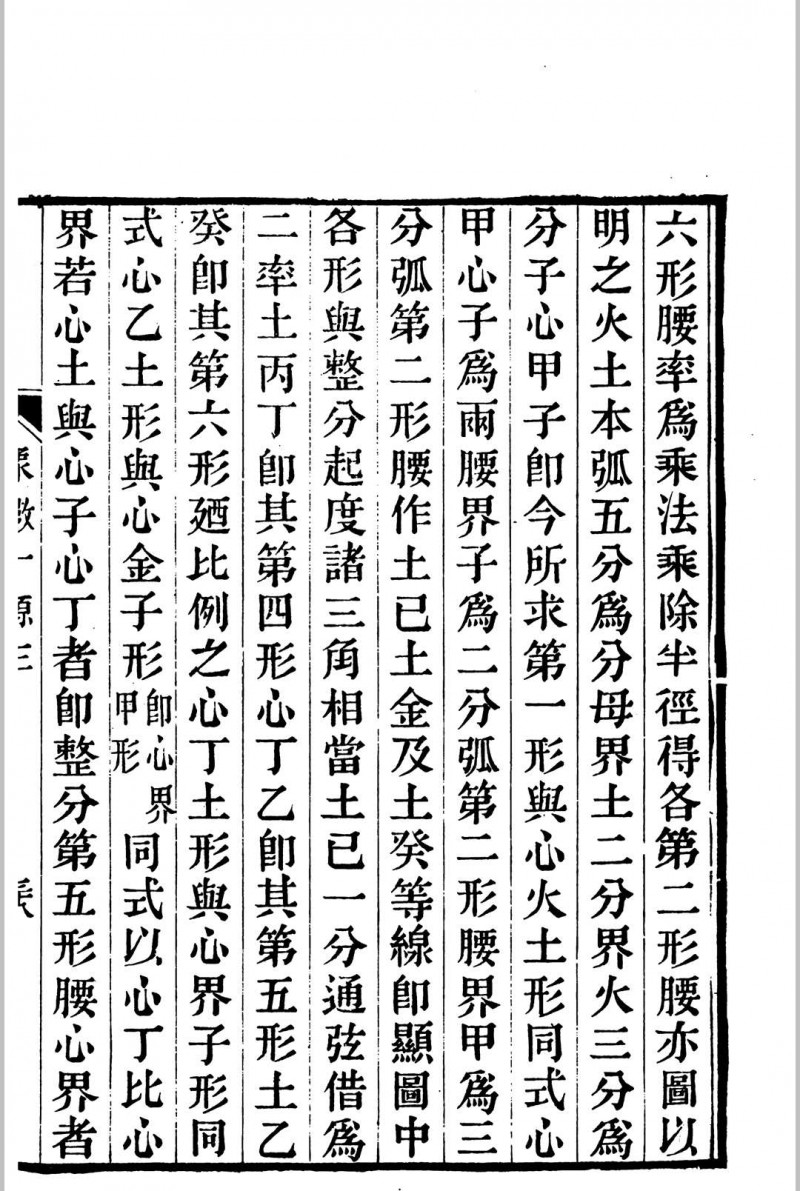 六形腰率爲乘法乘除半徑得各第二形腰亦圖以
明之火土本弧五分爲分母界土二分界火三分爲
分子心甲子卽今所求第一形與心火土形同式心
甲心子爲兩腰界子爲二分弧第二形腰界甲爲三
分弧第二形腰作土已土金及土癸等線卽顯圖中
各形與整分起度諸三角相當土已一分通弦借爲
二率土丙丁卽其第四形心丁乙卽其第五形土乙
癸卽其第六形廼比例之心丁土形與心界子形同
式心乙土形與心金子形卽心界甲形同式以心丁比心
界若心土與心子心丁者卽整分第五形腰心界者
數一源三